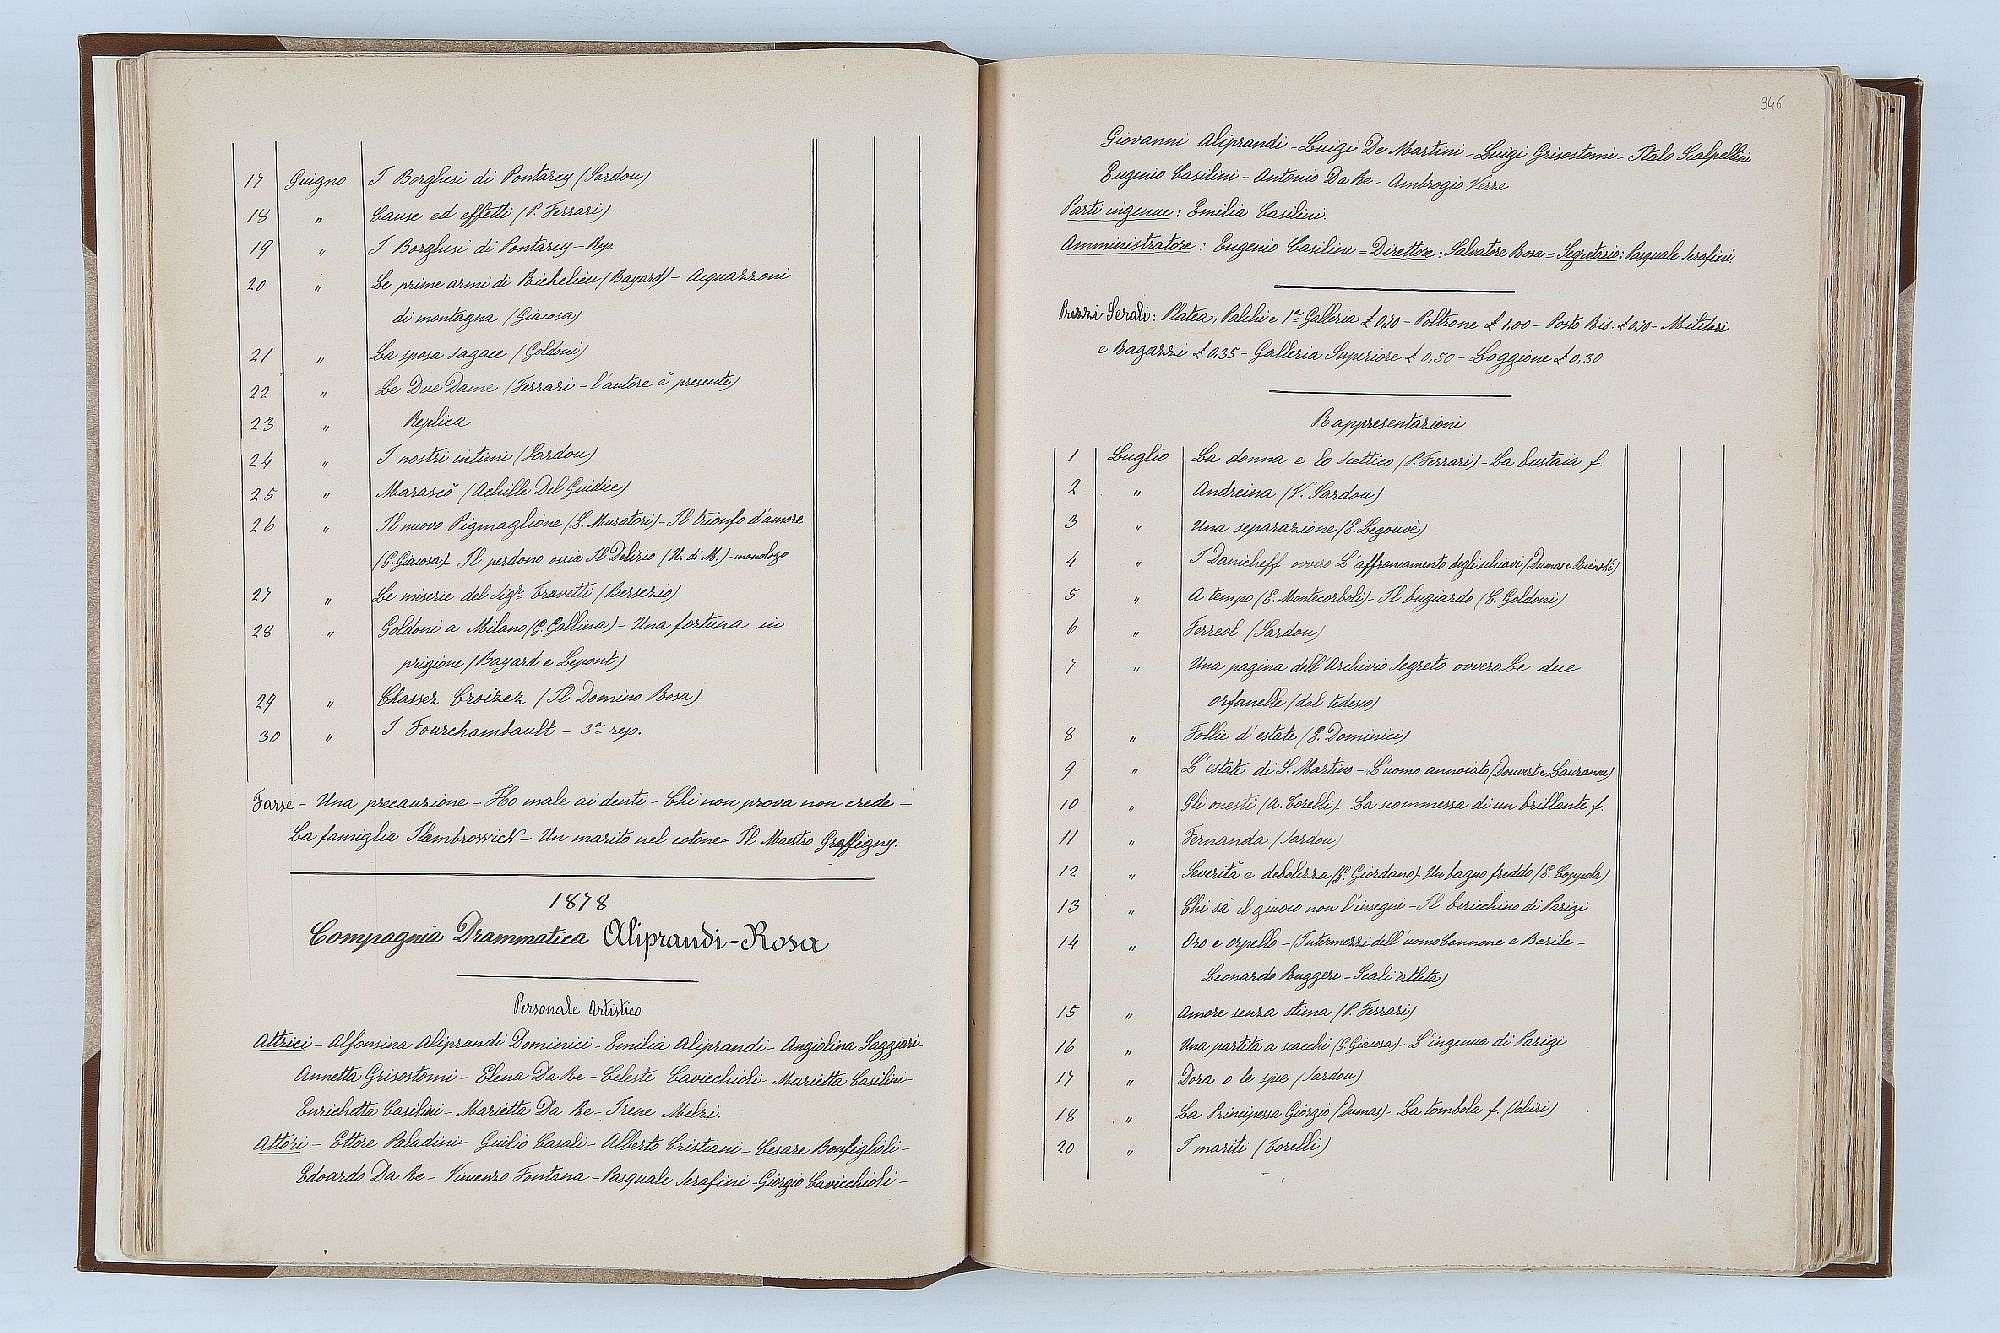 17 Guigno I Borghesi di Pontarcy (Sardou)
18 " Cause ed effetti (P. Ferrari)
19 " I Borghesi di Pontarcy - Rep.
20 " Le prime armi di Richelieu (Bayard) - Acquazzoni
di montagna (Giacosa)
21 " La sposa sagace (Goldoni)
22 " Le Due Dame (Ferrari - l'autore è presente)
23 " Replica
24 " I nostri intimi (Sardou)
25 " Marasco (Achille Del Giudice)
26 " Il nuovo Pigmaglione (G. Muratori) - Il trionfo d'amore
(G. Giacosa) - Il perdono ossia Il Delirio (N. di M.) - monologo
27 " Le miserie del Sigr. Travetti (Bersezio)
28 " Goldoni a Milano (G. Gallina) - Una fortuna in
prigione (Bayard e Lepont)
29 " Chassez Croizez (Il Domino Rosa)
30 " I Fourchambault - 3a rep.
Farse - Una precauzione - Ho male ai denti - Chi non prova non crede -
La famiglia Flambrowick - Un marito nel cotone - Il Maestro Graffigny.
1878
Compagnia Drammatica Aliprandi-Rosa
Personale Artistico
Attrici - Alfonsina Aliprandi Dominici - Emilia Aliprandi - Angiolina Saggiari -
Annetta Grisostomi - Elena Da Re - Celeste Cavicchioli - Marietta Casilini -
Enrichetta Casilini - Marietta Da Re - Irene Melzi.
Attori - Ettore Paladini - Giulio Casali - Alberto Cristiani - Cesare Bonfiglioli -
Edoardo Da Re - Vincenzo Fontana - Pasquale Serafini - Giorgio Cavicchioli -
346
Giovanni Aliprandi - Luigi De Martini - Luigi Grisostomi - Italo Scalpellini
Eugenio Casilini - Antonio Da Re - Ambrogio Verre
Parti ingenue: Emilia Casilini.
Amministratore: Eugenio Casilini = Direttore: Salvatore Rosa = Segretario: Pasquale Serafini
Prezzi Serali: Platea, Palchi e 1a Galleria £ 0,70 - Poltrone £ 1,00 - Posto Ris. £ 0,70 - Militari
e Ragazzi £ 0.35 - Galleria Superiore £ 0,50 - Loggione £ 0,30
Rappresentazioni
1 Luglio La donna e lo scettico (P. Ferrari) - La bustaia f.
2 " Andreina (V. Sardou)
3 " Una separazione (E. Legouvé)
4 " I Danicheff ovvero L'affrancamento degli schiavi (Dumas e)
5 " A tempo (E. Montecorboli) - Il bugiardo (C. Goldoni)
6 " Ferreol (Sardou)
7 " Una pagina dell'Archivio Segreto ovvero Le due
orfanelle (dal tedesco)
8 " Follie d'estate (E. Dominici)
9 " L'estate di S. Martino - L'uomo annoiato (Duvert e Lauzanne)
10 " Gli onesti (A. Torelli) - La scommessa di un brillante f.
11 " Fernanda (Sardou)
12 " Severità e debolezza (G. Giordano) - Un bagno freddo (E. Coppola)
13 " Chi sa il giuoco non l'insegni - Il biricchino di Parigi
14 " Oro e orpello - (Intermezzi dell'uomo Cannone e Basile -
Leonardo Ruggeri - Scali atleta)
15 " Amore senza stima (P. Ferrari)
16 " Una partita a scacchi (G. Giacosa) - L'ingenua di Parigi
17 " Dora o le spie (Sardou)
18 " La Principessa Giorgio (Dumas) - La tombola f. (Soliri)
20 " I mariti (Torelli)